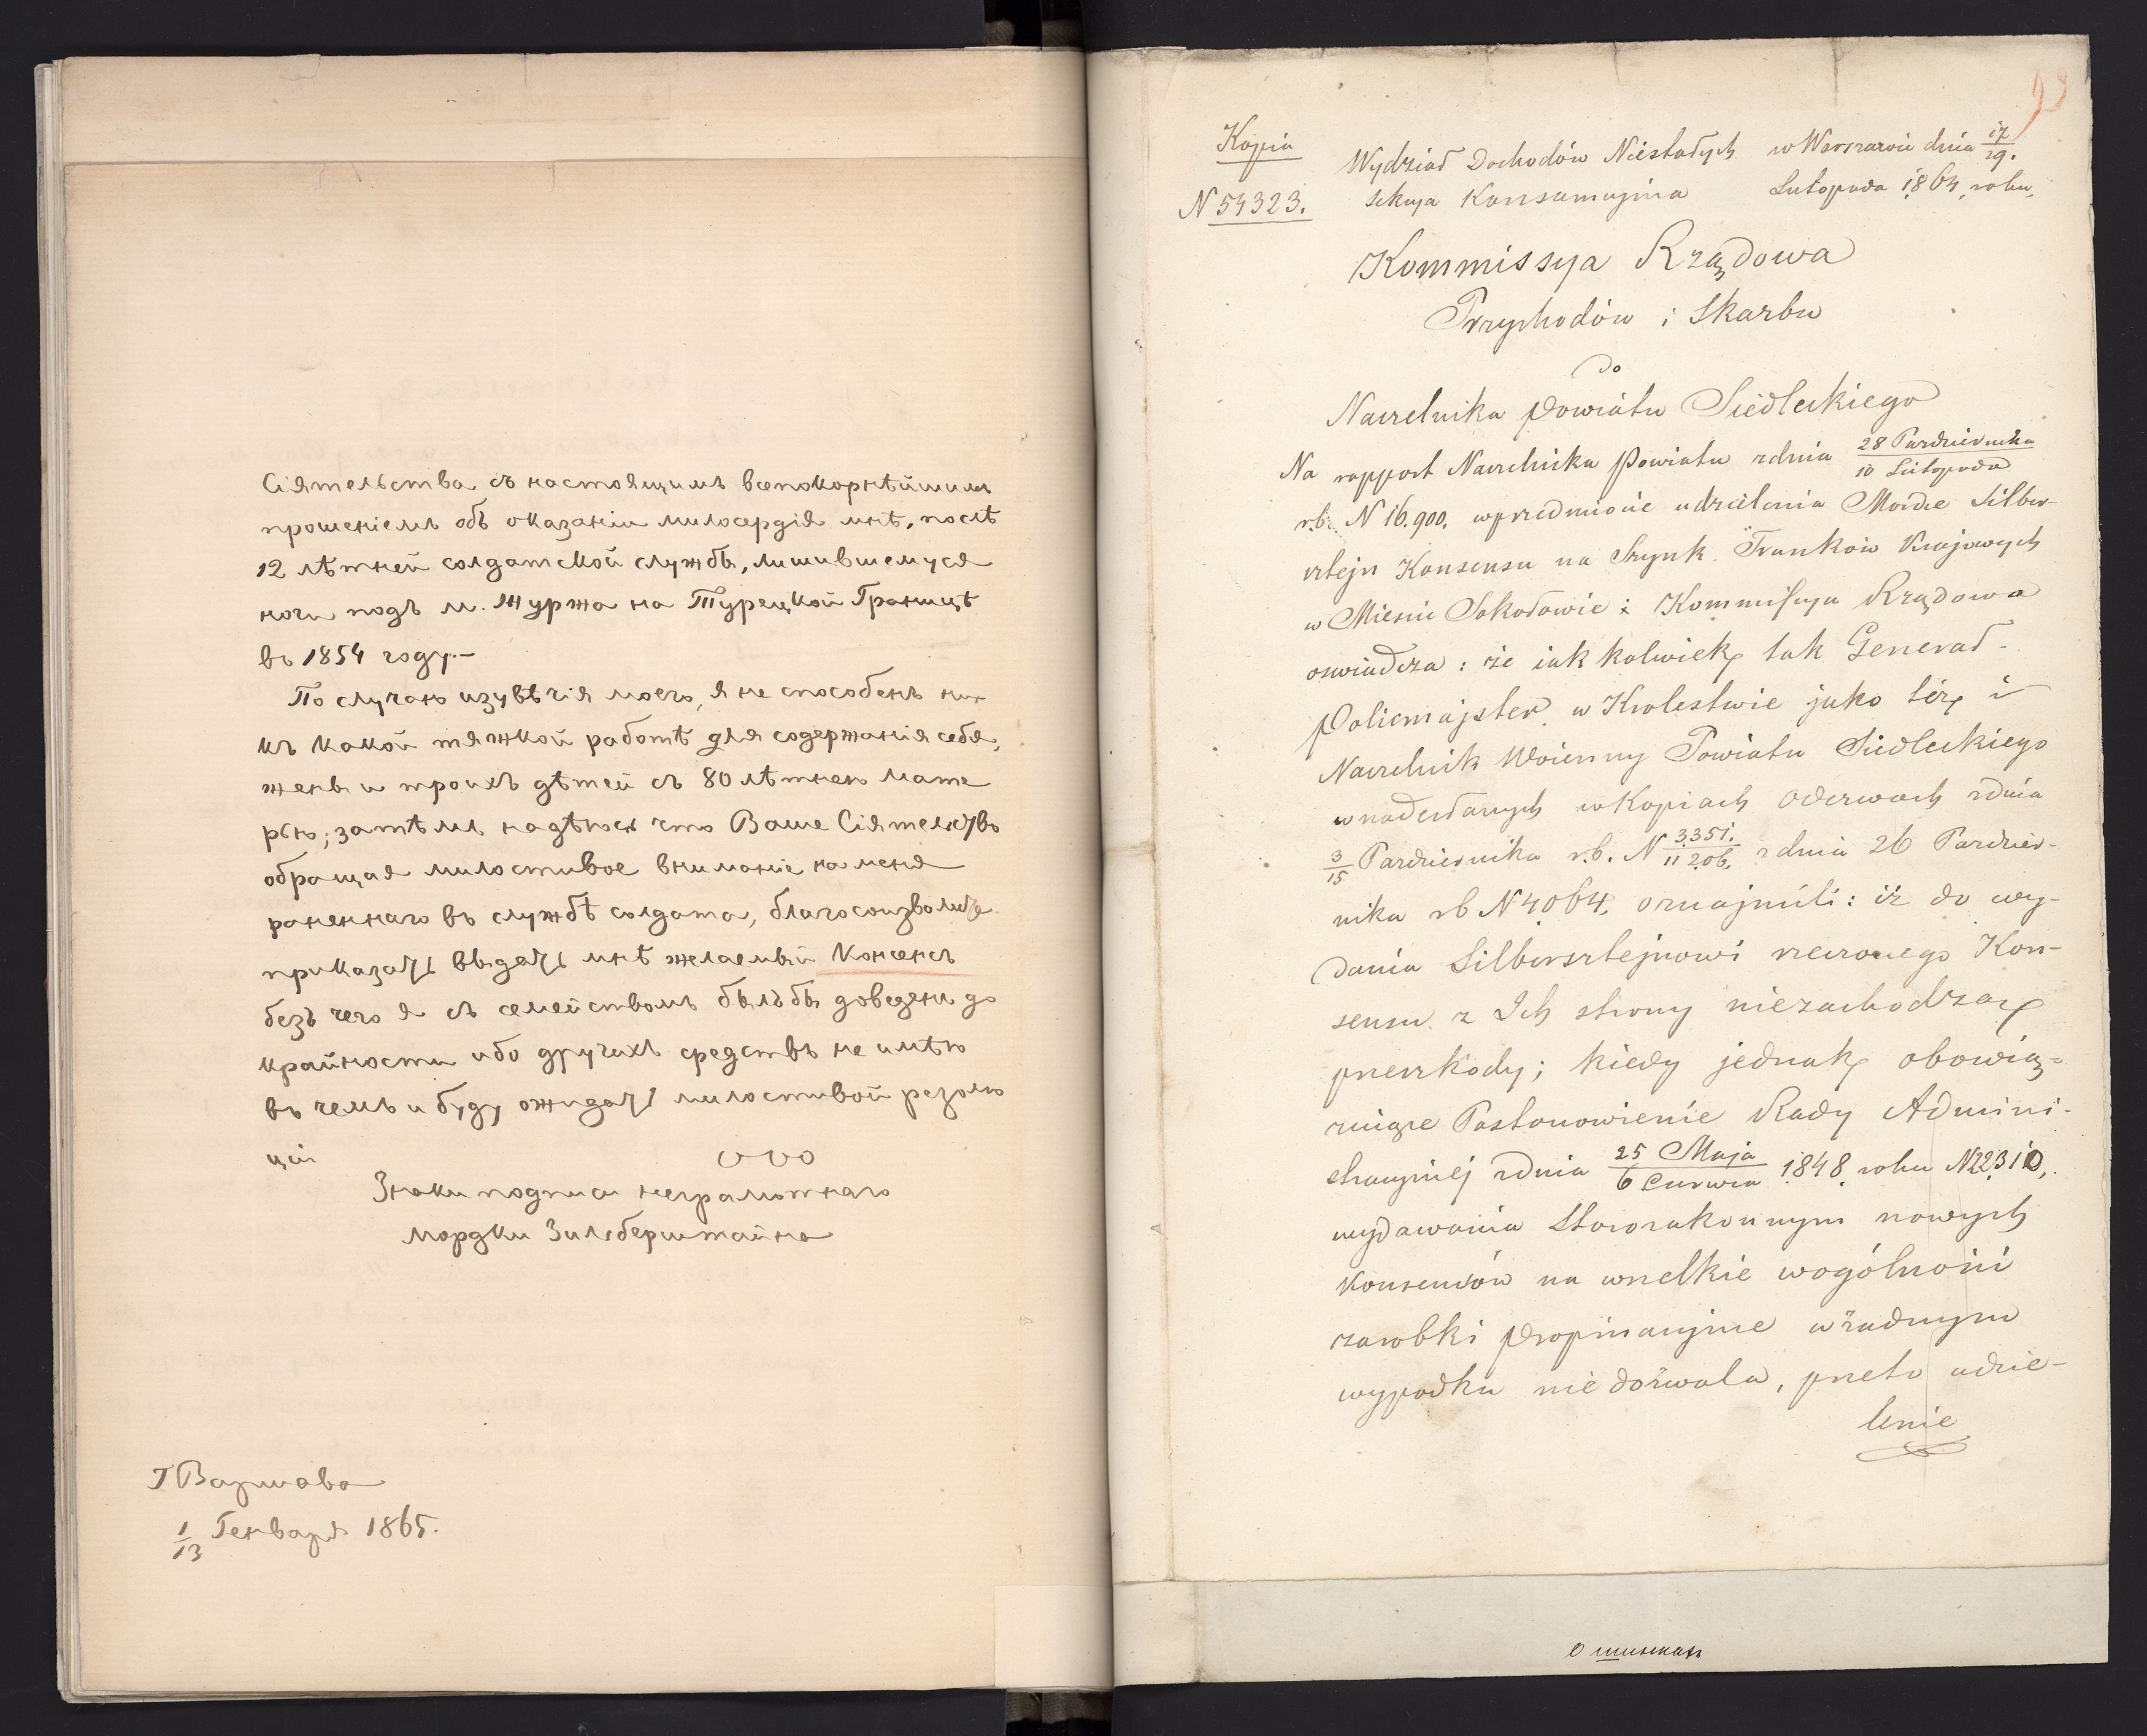 Сіятельства съ настоящимъ всепокорнѣйшимъ
прошеніемъ объ оказаніи милосердія мнѣ, послѣ
12 лѣтней солдатской службы, лишившемуся
ноги подъ м. Журжа на Турецкой Границѣ
въ 1854 году.—
По случаю изувѣчія моего, я не способенъ ни
къ какой тяжкой работѣ для содержанія себя,
жены и троихъ дѣтей съ 80 лѣтнею мате
рью; затѣмъ надѣюсь что Ваше Сіятельство
обращая милостивое вниманіе на меня
раненнаго въ службѣ солдата, благосоизволите
приказать выдать мнѣ желаемый Консенсъ
безъ чего я съ семействомъ былъ бы доведенъ до
крайности ибо другихъ средствъ не имѣю
въ чемъ и буду ожидать милостивой резолю
ціи
ооо
Знаки подписи неграмотнаго
Мордки Зильберштайна
Г Варшава
1/13 Генваря 1865.
93
Kopia
N 54323.
Wydział Dochodów Niestałych w Warszawie dnia 17/29.
Sekcya Konsumcyjna Listopada 1864 roku,
Kommissya Rządowa
Przychodów i Skarbu
do
Naczelnika Powiatu Siedleckiego
Na rapport Naczelnika Powiatu z dnia 28 Października/10 Listopada
r.b. N 16.900. w przedmiocie udzielenia Mordce Silber-
sztejn Konsensu na Szynk Trunków Krajowych
w Mieście Sokołowie; Kommissya Rządowa
oswiadcza: że iak kolwiek tak Generał-
Policmajster w Krolestwie jako też i
Naczelnik Woienny Powiatu Siedleckiego
w nadesłanych w Kopiach Odezwach z dnia
3/15 Października r.b. N 3351./11206. z dnia 26 Paździer-
nika rb N 4064, oznajmili: iż do wy-
dania Silbersztejnowi rzeczonego Kon-
sensu z Ich strony niezachodzą
przeszkody; kiedy jednak obowią-
zujące Postanowienie Rady Admini-
stracyjnej z dnia 25 Maja/6 Czerwca 1848 roku N 22310,
wydawania Starozakonnym nowych
konsensów na wszelkie wogólności
zarobki propinacyjne w żadnym
wypadku nie dozwala, przeto udzie-
lenie